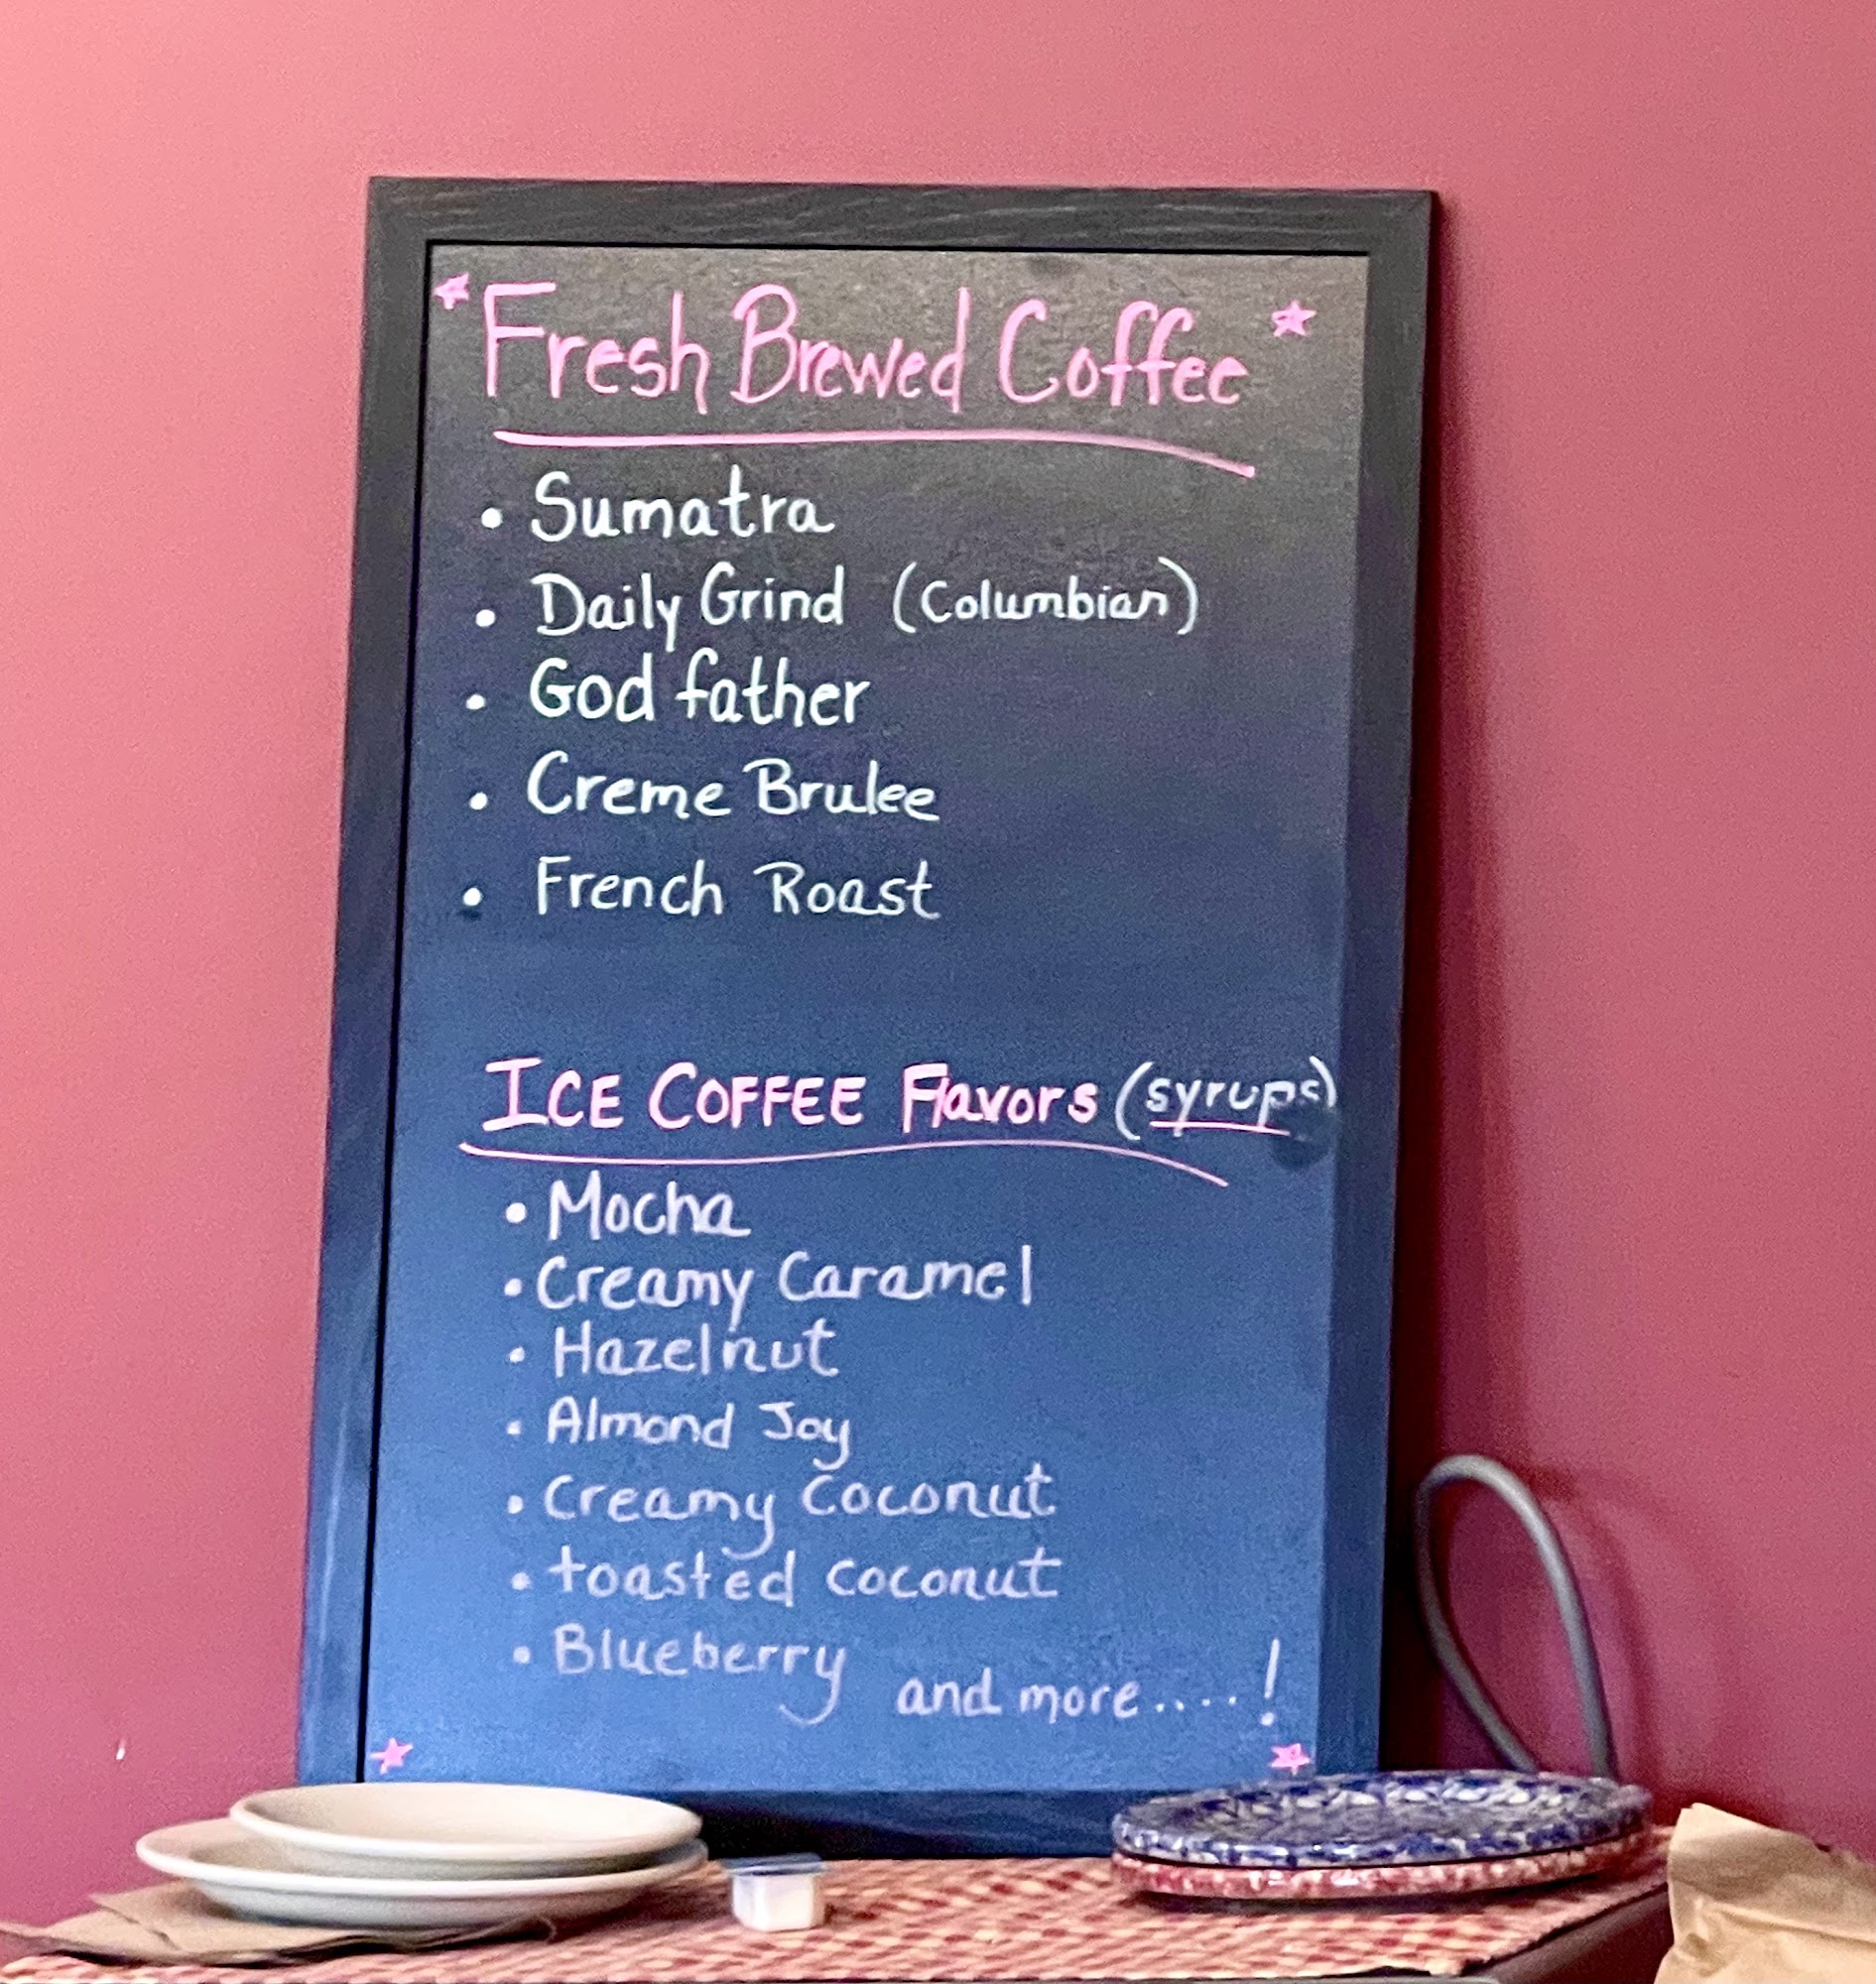 Fresh Brewed Coffee
• Sumatra
• Daily Grind (Columbian)
• God father
• Creme Brulee
• French Roast
ICE COFFEE Flavors (syrups)
• Mocha
• Creamy Caramel
• Hazelnut
• Almond Joy
• Creamy Coconut
• toasted coconut
• Blueberry and more.....!